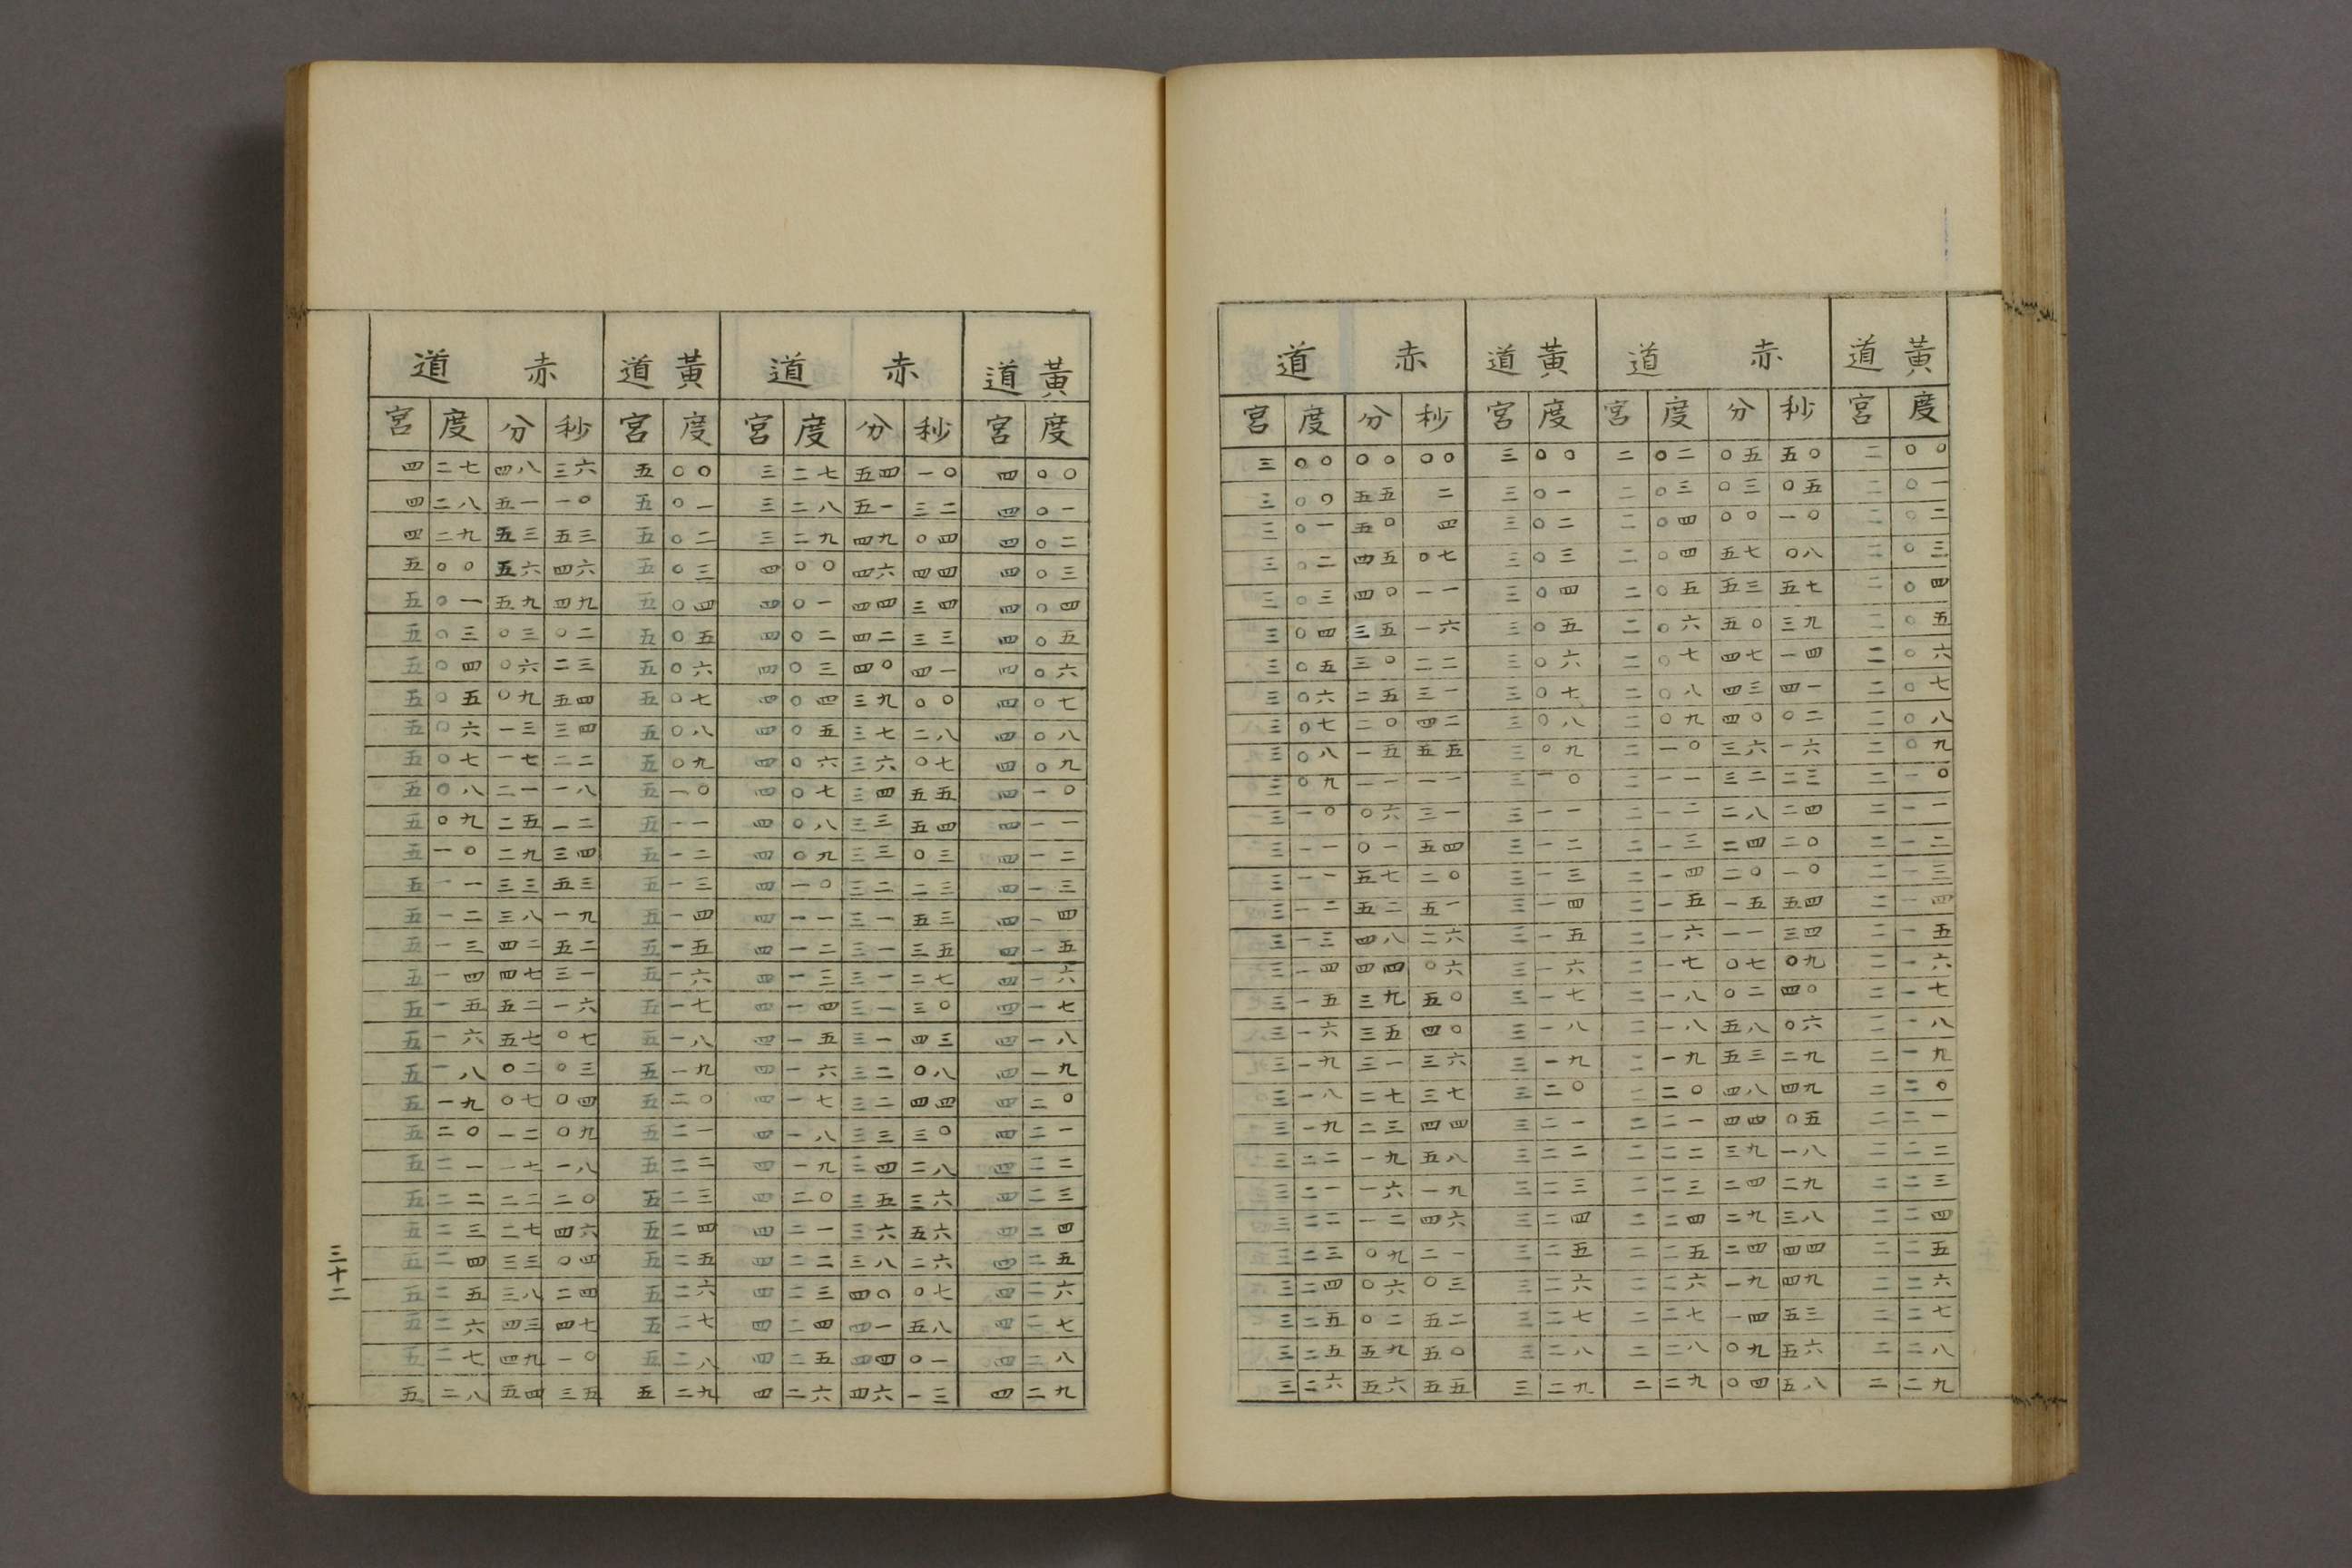 赤道 黃道 赤道 黃道
宮 度 分 秒 宮 度 宮 度 分 秒 宮 度
三 〇〇 〇〇 〇〇 三 〇〇 二 〇二 〇五 五〇 二 〇〇
三 〇〇 五五 二 三 〇一 二 〇三 〇三 〇五 二 〇一
三 〇一 五〇 四 三 〇二 二 〇四 〇〇 一〇 二 〇二
三 〇二 四五 〇七 三 〇三 二 〇四 五七 〇八 二 〇三
三 〇三 四〇 一一 三 〇四 二 〇五 五三 五七 二 〇四
三 〇四 三五 一六 三 〇五 二 〇六 五〇 三九 二 〇五
三 〇五 三〇 二二 三 〇六 二 〇七 四七 一四 二 〇六
三 〇六 二五 三一 三 〇七 二 〇八 四三 四一 二 〇七
三 〇七 二〇 四二 三 〇八 二 〇九 四〇 〇二 二 〇八
三 〇八 一五 五五 三 〇九 二 一〇 三六 一六 二 〇九
三 〇九 一一 一一 三 一〇 二 一一 三二 二三 二 一〇
三 一〇 〇六 三一 三 一一 二 一二 二八 二四 二 一一
三 一一 〇一 五四 三 一二 二 一三 二四 二〇 二 一二
三 一一 五七 二〇 三 一三 二 一四 二〇 一〇 二 一三
三 一二 五二 五一 三 一四 二 一五 一五 五四 二 一四
三 一三 四八 二六 三 一五 二 一六 一一 三四 二 一五
三 一四 四四 〇六 三 一六 二 一七 〇七 〇九 二 一六
三 一五 三九 五〇 三 一七 二 一八 〇二 四〇 二 一七
三 一六 三五 四〇 三 一八 二 一八 五八 〇六 二 一八
三 一九 三一 三六 三 一九 二 一九 五三 二九 二 一九
三 一八 二七 三七 三 二〇 二 二〇 四八 四九 二 二〇
三 一九 二三 四四 三 二一 二 二一 四四 〇五 二 二一
三 二二 一九 五八 三 二二 二 二二 三九 一八 二 二二
三 二一 一六 一九 三 二三 二 二三 二四 二九 二 二三
三 二二 一二 四六 三 二四 二 二四 二九 三八 二 二四
三 二三 〇九 二一 三 二五 二 二五 二四 四四 二 二五
三 二四 〇六 〇三 三 二六 二 二六 一九 四九 二 二六
三 二五 〇二 五二 三 二七 二 二七 一四 五三 二 二七
三 二五 五九 五〇 三 二八 二 二八 〇九 五六 二 二八
三 二六 五六 五五 三 二九 二 二九 〇四 五八 二 二九
赤道 黃道 赤道 黃道
宮 度 分 秒 宮 度 宮 度 分 秒 宮 度
四 二七 四八 三六 五 〇〇 三 二七 五四 一〇 四 〇〇
四 二八 五一 一〇 五 〇一 三 二八 五一 三二 四 〇一
四 二九 五三 五三 五 〇二 三 二九 四九 〇四 四 〇二
五 〇〇 五六 四六 五 〇三 四 〇〇 四六 四四 四 〇三
五 〇一 五九 四九 五 〇四 四 〇一 四四 三四 四 〇四
五 〇三 〇三 〇二 五 〇五 四 〇二 四二 三三 四 〇五
五 〇四 〇六 二三 五 〇六 四 〇三 四〇 四一 四 〇六
五 〇五 〇九 五四 五 〇七 四 〇四 三九 〇〇 四 〇七
五 〇六 一三 三四 五 〇八 四 〇五 三七 二八 四 〇八
五 〇七 一七 二二 五 〇九 四 〇六 三六 〇七 四 〇九
五 〇八 二一 一八 五 一〇 四 〇七 三四 五五 四 一〇
五 〇九 二五 二二 五 一一 四 〇八 三三 五四 四 一一
五 一〇 二九 三四 五 一二 四 〇九 三三 〇三 四 一二
五 一一 三三 五三 五 一三 四 一〇 三二 二三 四 一三
五 一二 三八 一九 五 一四 四 一一 三一 五三 四 一四
五 一三 四二 五二 五 一五 四 一二 三一 三五 四 一五
五 一四 四七 三一 五 一六 四 一三 三一 二七 四 一六
五 一五 五二 一六 五 一七 四 一四 三一 三〇 四 一七
五 一六 五七 〇七 五 一八 四 一五 三一 四三 四 一八
五 一八 〇二 〇三 五 一九 四 一六 三二 〇八 四 一九
五 一九 〇七 〇四 五 二〇 四 一七 三二 四四 四 二〇
五 二〇 一二 〇九 五 二一 四 一八 三三 三〇 四 二一
五 二一 一七 一八 五 二二 四 一九 三四 二八 四 二二
五 二二 二二 二〇 五 二三 四 二〇 三五 三六 四 二三
五 二三 二七 四六 五 二四 四 二一 三六 五六 四 二四
五 二四 三三 〇四 五 二五 四 二二 三八 二六 四 二五
五 二五 三八 二四 五 二六 四 二三 四〇 〇七 四 二六
五 二六 四三 四七 五 二七 四 二四 四一 五八 四 二七
五 二七 四九 一〇 五 二八 四 二五 四四 〇一 四 二八
五 二八 五四 三五 五 二九 四 二六 四六 一三 四 二九
三十二